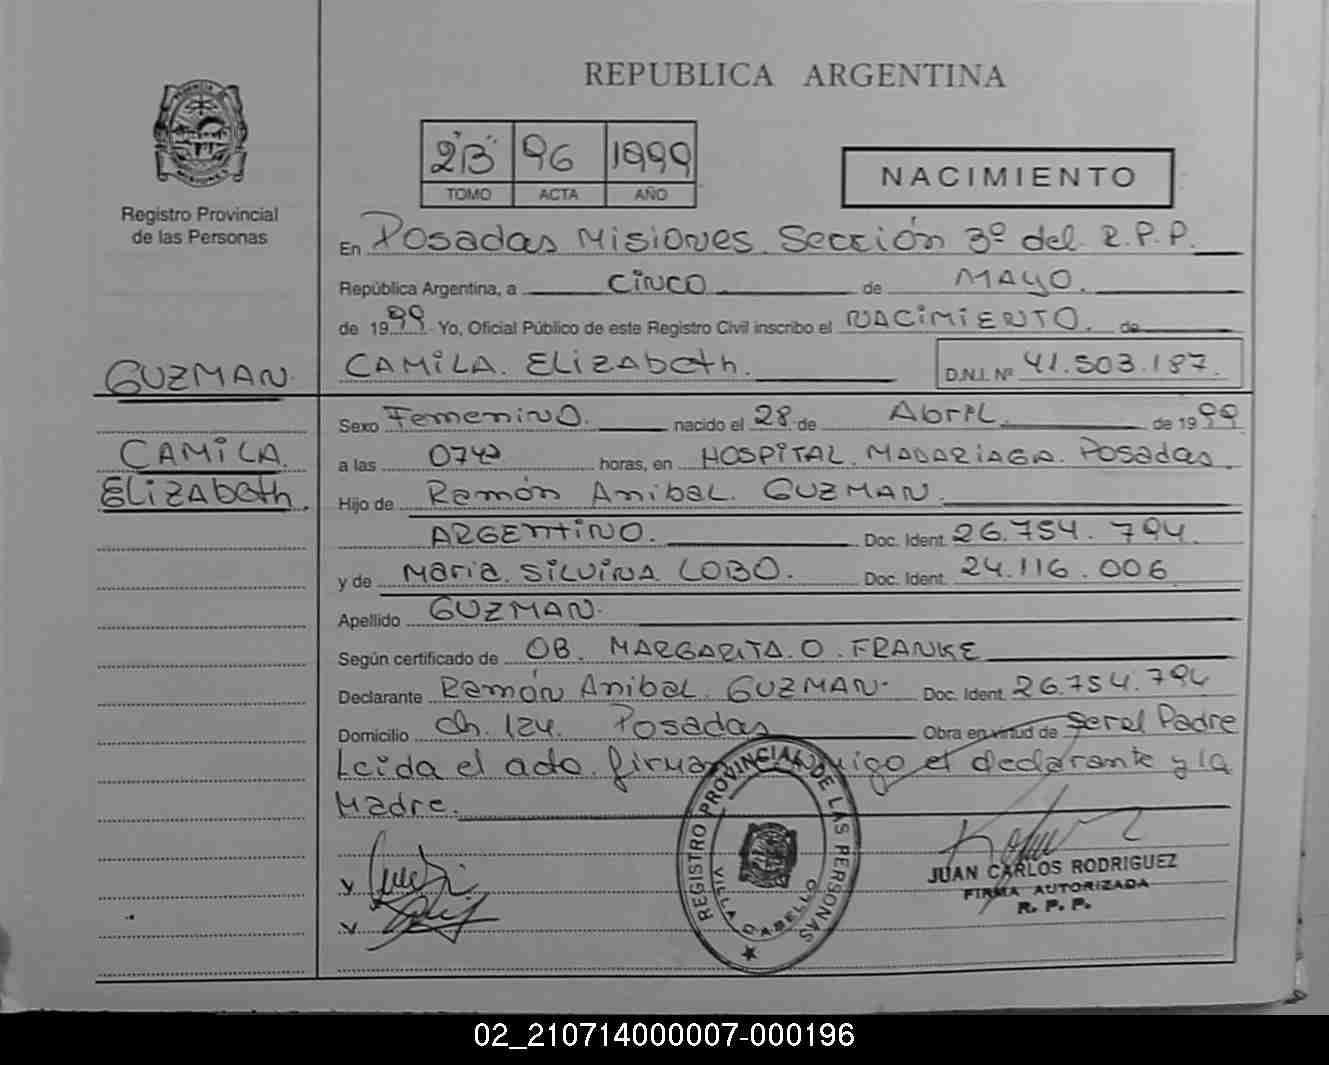 REPUBLICA ARGENTINA
2"B" 96 1999
TOMO ACTA AÑO
NACIMIENTO
Registro Provincial
de las Personas
En Posadas Misiones. Sección 3º del R.P.P.
República Argentina, a CINCO de MAYO.
de 1999 Yo, Oficial Público de este Registro Civil inscribo el NACIMIENTO. de
GUZMAN. CAMILA. ELIZAbeth. D.N.I. Nº 41.503.187.
Sexo Femenino. nacido el 28 de AbriL de 1999
CAMILA a las 0740 horas, en HOSPITAL. MADARIAGA. Posadas.
ELIZAbeth. Hijo de Ramón AnibaL. GUZMAN.
ARGENTINO. Doc. Ident. 26.754.794.
y de Maria. SILVINA LOBO. Doc. Ident. 24.116.006
Apellido GUZMAN.
Según certificado de OB. MARGARITA. O. FRANKE
Declarante Ramón AnibaL. GUZMAN. Doc. Ident. 26.754.794
Domicilio Ch. 124. Posadas Obra en virtud de ser el Padre
Leida el acta. firman conmigo el declarante y la
Madre.
REGISTRO PROVINCIAL DE LAS PERSONAS
VILLA CABELLO
JUAN CARLOS RODRIGUEZ
FIRMA AUTORIZADA
R. P. P.
02_210714000007-000196